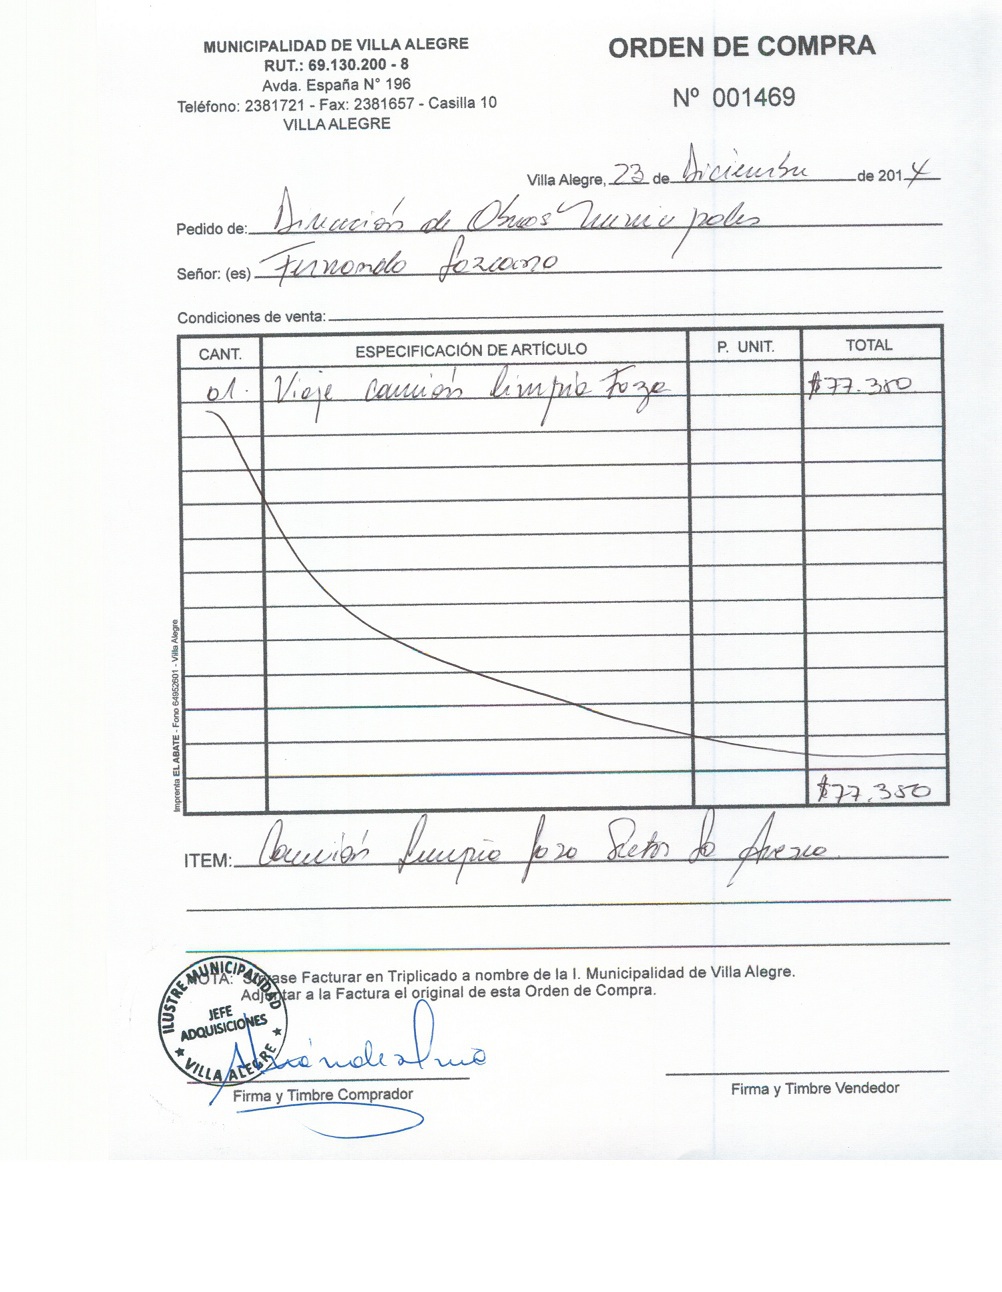 MUNICIPALIDAD DE VILLA ALEGRE
RUT.: 69.130.200 - 8
Avda. España N° 196
Teléfono: 2381721 - Fax: 2381657 - Casilla 10
VILLA ALEGRE
ORDEN DE COMPRA
Nº 001469
Villa Alegre, 23 de Diciembre de 2014
Pedido de: Dirección de Obras Municipales
Señor: (es) Fernando Lozcano
Condiciones de venta:
CANT. ESPECIFICACIÓN DE ARTÍCULO P. UNIT. TOTAL
01. Viaje camión limpia Foza $77.380
$77.380
ITEM: Camión Limpia foza
NOTA: Sírvase Facturar en Triplicado a nombre de la I. Municipalidad de Villa Alegre.
Adjuntar a la Factura el original de esta Orden de Compra.
ILUSTRE MUNICIPALIDAD
JEFE
ADQUISICIONES
★ VILLA ALEGRE ★
Firma y Timbre Comprador
Firma y Timbre Vendedor
Imprenta EL ABATE - Fono 64952601 - Villa Alegre